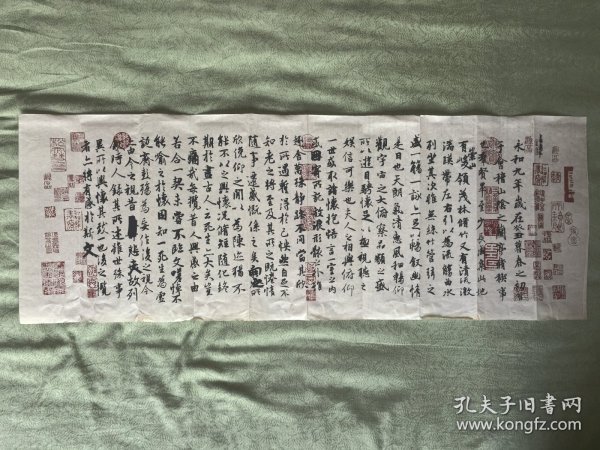 永和九年歲在癸丑暮春之初
會于會稽山陰之蘭亭脩稧事
也羣賢畢至少長咸集此地
有崇山峻領茂林脩竹又有清流激
湍暎帶左右引以為流觴曲水
列坐其次雖無絲竹管弦之
盛一觴一詠亦足以暢敘幽情
是日也天朗氣清惠風和暢仰
觀宇宙之大俯察品類之盛
所以遊目騁懷足以極視聽之
娛信可樂也夫人之相與俯仰
一世或取諸懷抱悟言一室之內
或因寄所託放浪形骸之外雖
趣舍萬殊靜躁不同當其欣
於所遇暫得於己快然自足不
知老之將至及其所之既惓情
隨事遷感慨係之矣向之所
欣俛仰之間以為陳迹猶不
能不以之興懷況脩短隨化終
期於盡古人云死生亦大矣豈
不痛哉每攬昔人興感之由
若合一契未嘗不臨文嗟悼不
能喻之於懷固知一死生為虛
誕齊彭殤為妄作後之視今
亦由今之視昔悲夫故列
敘時人錄其所述雖世殊事
異所以興懷其致一也後之攬
者亦將有感於斯文
孔夫子旧书网
www.kongfz.com